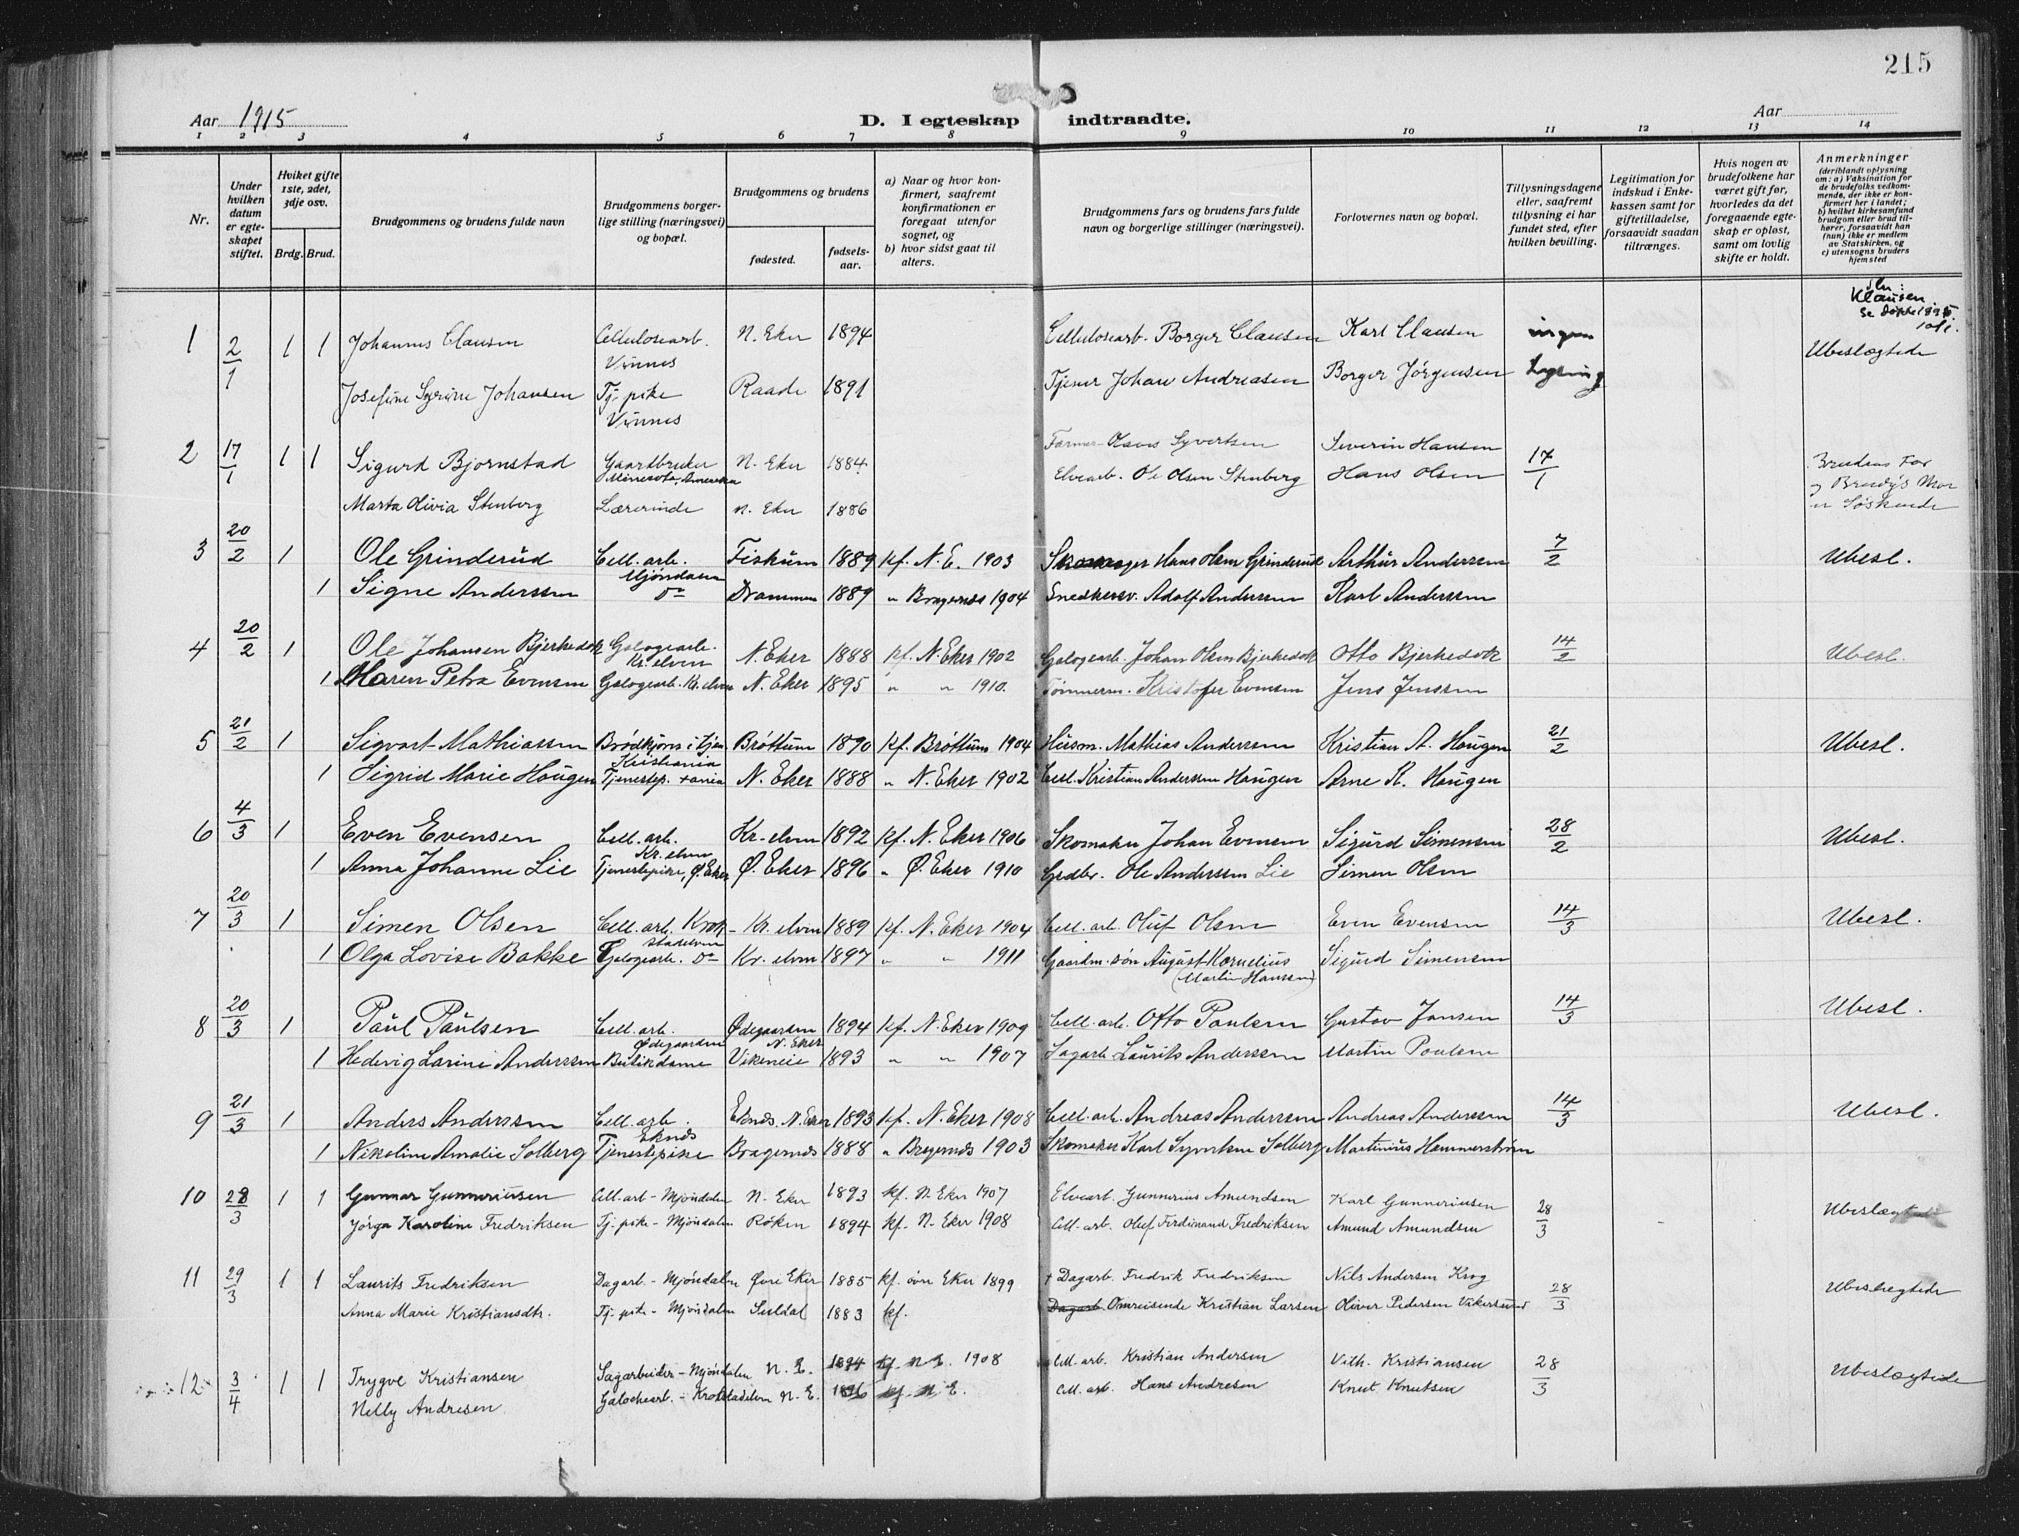 215
Aar 1915
D. I egteskap indtraadte.
Aar
1 2 3 4 5 6 7 8 9 10 11 12 13 14
Nr.
Under hvilken datum er egte-skapet stiftet.
Hviket gifte 1ste, 2det, 3dje osv.
Brdg. Brud.
Brudgommens og brudens fulde navn
Brudgommens borger-lige stilling (næringsvei) og bopæl.
Brudgommens og brudens
fødested.
fødsels-aar.
a) Naar og hvor kon-firmert, saafremt konfirmationen er foregaat utenfor sognet, og
b) hvor sidst gaat til alters.
Brudgommens fars og brudens fars fulde navn og borgerlige stillinger (næringsvei).
Forlovernes navn og bopæl.
Tillysningsdagene eller, saafremt tillysning ei har fundet sted, efter hvilken bevilling.
Legitimation for indskud i Enke-kassen samt for giftetilladelse, forsaavidt saadan tiltrænges.
Hvis nogen av brudefolkene har været gift før, hvorledes da det foregaaende egte-skap er opløst, samt om lovlig skifte er holdt.
Anmerkninger (deriblandt oplysning om: a) Vaksination for de brudefolks vedkom-mende, der ikke er kon-firmert her i landet; b) hvilket kirkesamfund brudgom eller brud til-hører, forsaavidt han (hun) ikke er medlem av Statskirken, og c) utensogns bruders hjemsted
Klausen.
1 2/1 1 1 Johannes Clausen Cellulosearb. Vinnes N. Eker 1894 Cellulosearb. Borger Clausen Karl Clausen ingen Ubeslægtede
Josefine Syrine Johansen Tj. pike Vinnes Raade 1891 Tjener Johan Andreasen Borger Jørgensen lysning
2 17/1 1 1 Sigurd Bjørnstad Gaardbruker Minesota, Amerika N. Eker 1884 Farmer Hans Syvertsen Severin Hansen 17/1 Brudens Far og Brudg's Mor er Søskende
Marta Livia Stenberg Lærerinde N. Eker 1886 Elvearb. Ole Olsen Stenberg Hans Olsen
3 20/2 1 Ole Grinderud Cell. arb. Mjøndalen Fiskum 1889 kf. N. E. 1903 Hans Olsen Grinderud Arthur Anderssen 7/2 Ubesl.
1 Signe Anderssen Do Drammen 1889 " Bragernes 1904 Snedkersv. Adolf Anderssen Karl Anderssen
4 20/2 1 Ole Johansen Bjerkedok Galogearb. Kr. elven N. Eker 1888 kf. N. Eker 1902 Galogearb. Johan Olsen Bjerkedok Otto Bjerkedok 14/2 Ubesl.
1 Maren Petra Evensen Galogearb. Kr. elven N. Eker 1895 " " 1910. Tømmerm. Kristofer Evensen Jens Jenssen
5 21/2 1 Sigvart Mathiassen Brødkjører i Kristiania Brøttum 1890 kf. Brøttum 1904 Husm. Mathias Anderssen Kristian A. Haugen 21/2 Ubesl.
1 Sigrid Marie Haugen Tjenestep. N. Eker 1888 " N. Eker 1902 Cesl. Kristian Anderssen Haugen Arne K. Haugen
6 4/3 1 Even Evensen Cell. arb. Kr. elven Kr-elven 1892 kf. N. Eker 1906 Skomaker Johan Evensen Sigurd Simensen 28/2 Ubesl.
1 Anna Johanne Lie Tjenestepike, Ø. Eker Ø. Eker 1896 " Ø. Eker 1910 Grdbr. Ole Anderssen Lie Simen Olsen
7 20/3 1 Simen Olsen Cell. arb. Krok-stadelven Kr. elven 1889 kf. N. Eker 1904 Cell. arb. Oluf Olsen Even Evensen 14/3 Ubesl.
1 Olga Lovise Bakke Galogearb. Do Kr. elven 1897 " " 1911 Gaardm. søn August Kornelius (Martin Hansen) Sigurd Simensen
8 20/3 1 Paul Paulsen Cell. arb. Ødegaarden Ødegaarden N. Eker 1894 kf. N. Eker 1909 Cell. arb. Otto Paulsen Gustav Jansen 14/3 Ubesl.
1 Hedevig Larine Anderssen Butikdame Vikeneie 1893 " " 1907 Sagarb. Laurits Anderssen Martin Paulsen
9 21/3 1 Anders Anderssen Cell. arb. Eknes Eknes. N. Eker 1893 kf. N. Eker 1908 Cell. arb. Andreas Anderssen Andreas Anderssen 14/3 Ubesl.
1 Nikoline Amalie Solberg Tjenestepike Bragernes 1888 " Bragernes 1903 Skomaker Karl Syvertsen Solberg Martinius Hammerstrøm
10 28/3 1 1 Gunnar Gunneriusen Cell. arb - Mjøndalen N. Eker 1893 kf. N. Eker 1907 Elvearb. Gunnerius Amundsen Karl Gunneriusen 28/3 Ubeslægtede
Jørga Karoline Fredriksen Tj. pike - Mjøndalen Røken 1894 kf. N. Eker 1908 Cell. arb. Oluf Ferdinand Fredriksen Amund Amundsen
11 29/3 1 1 Laurits Fredriksen Dagarb - Mjøndalen Øvre Eker 1885 kf. øvre Eker 1899 + Dagarb. Fredrik Fredriksen Nils Andersen Krog 28/3 Ubeslægtede
Anna Marie Kristiansdtr. Tj. pike - Mjøndalen Suldal 1883 kf. Dagarb. Omreisende Kristian Larsen Oliver Pedersen Vikersund
12 3/4 1 1 Trygve Kristiansen Sagarbeider - Mjøndalen N. E. 1894 kf. N. E. 1908 Cell. arb. Kristian Andersen Vilh. Kristiansen 28/3 Ubeslægtede
Nelly Andresen Galochearb. - Krokstadelven N. E. 1896 kf. N. E. Cell. arb Hans Andresen Knut Knutsen